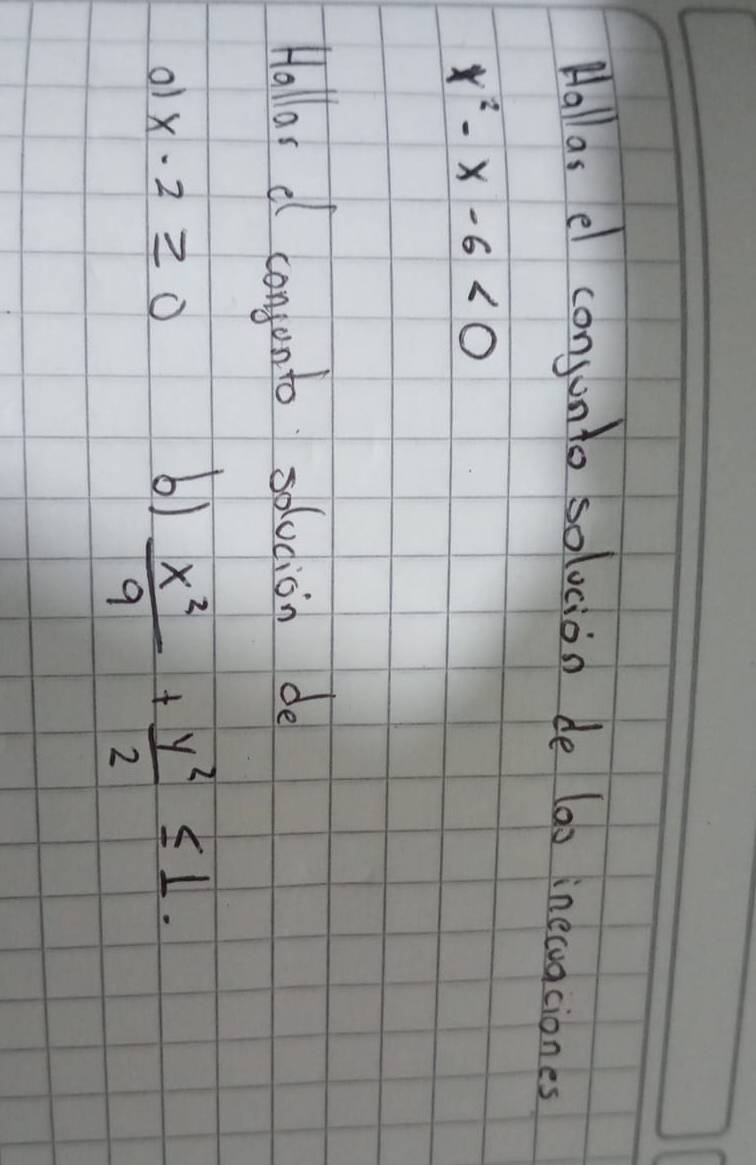 Hallas el conjunto solución de las inecuaciones
x² - x - 6 < 0
Hallas el conjunto solución de
a) x - 2 ≥ 0 b) x²/9 + y²/2 ≤ 1.